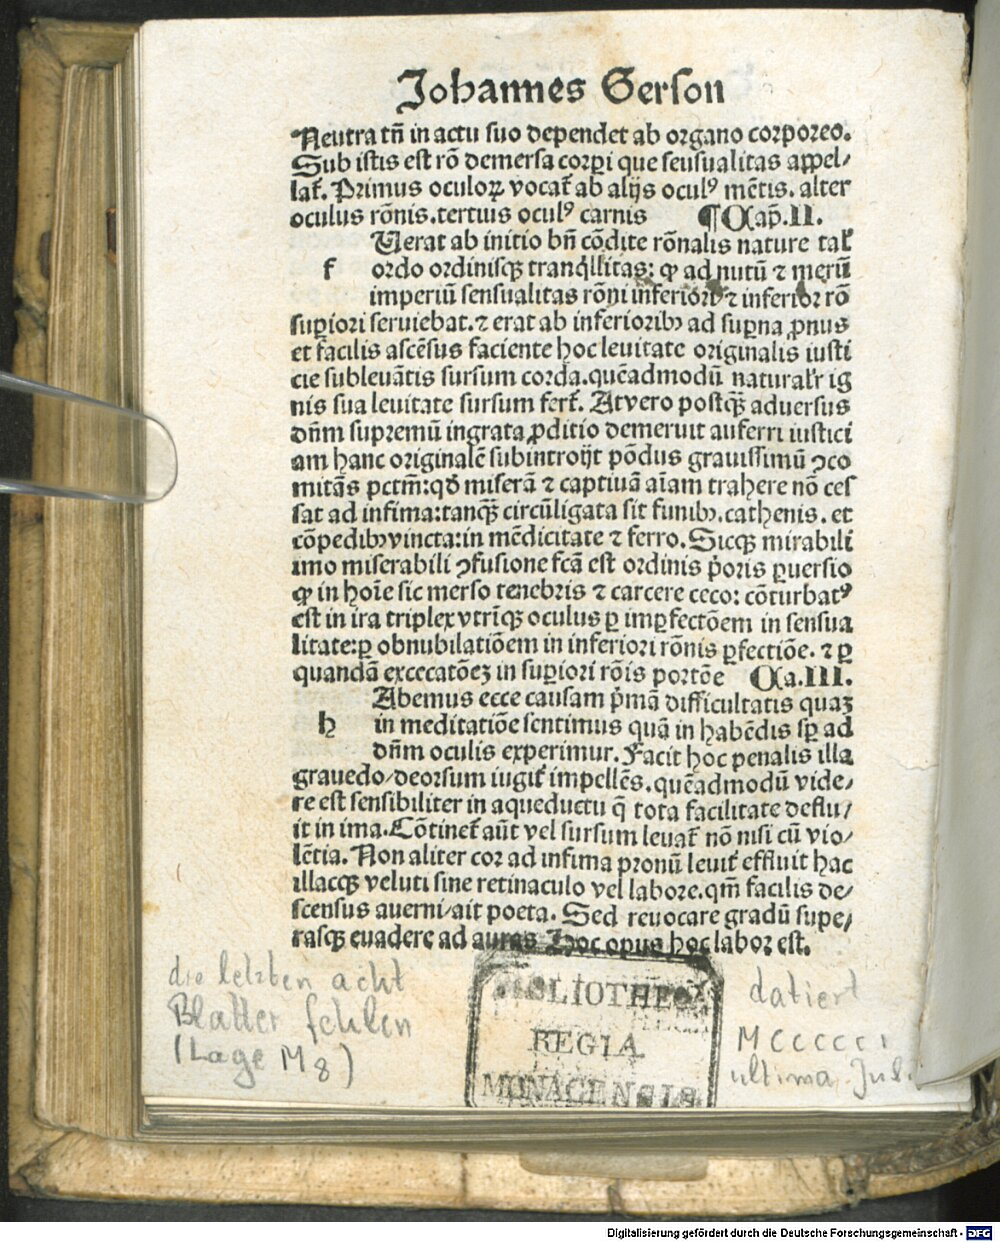 Johannes Gerson
Neutra tñ in actu suo dependet ab organo corporeo.
Sub istis est rõ demersa corꝑi que seusualitas appel/
lat̃. Primus oculoꝝ vocat̃ ab alijs oculꝰ mẽtis. alter
oculus rõnis. tertius oculꝰ carnis ¶ Cap̃. II.
f
Uerat ab initio bñ cõdite rõnalis nature tal̃
ordo ordinisqꝫ tranq̇llitas: ꝙ ad nutũ ⁊ merũ
imperiũ sensualitas rõni inferiori ⁊ inferior rõ
suꝑiori seruiebat. ⁊ erat ab inferioribꝫ ad suꝑna ꝓnus
et facilis ascẽsus faciente hoc leuitate originalis iusti
cie subleuãtis sursum corda. quẽadmodũ natural̃r ig
nis sua leuitate sursum fert̃. At vero postꝙ̃ aduersus
dñm supremũ ingrata ꝓditio demeruit auferri iustici
am hanc originalẽ subintroijt põdus grauissimũ ꝯco
mitãs pctm̃: qð miserã ⁊ captiuã aĩam trahere nõ ces
sat ad infima: tanꝙ̃ circũligata sit funibꝫ. cathenis. et
cõpedibꝫ vincta: in mẽdicitate ⁊ ferro. Sicqꝫ mirabili
imo miserabili ꝯfusione fcã est ordinis p̃oris ꝑuersio
ꝙ in hoĩe sic merso tenebris ⁊ carcere ceco: cõturbatꝰ
est in ira triplex vtrĩqꝫ oculus ꝑ imꝑfectõem in sensua
litate: ꝑ obnubilatiõem in inferiori rõnis ꝑfectiõe. ⁊ ꝑ
quandã excecatõeꝫ in suꝑiori rõis portõe Ca. III.
h
Abemus ecce causam p̃mã difficultatis quaꝫ
in meditatiõe sentimus quã in habẽdis sꝑ ad
dñm oculis experimur. Facit hoc penalis illa
grauedo/ deorsum iugit̃ impellẽs. quẽadmodũ vide/
re est sensibiliter in aqueductu q̃ tota facilitate deflu/
it in ima. Cõtinet̃ aũt vel sursum leuat̃ nõ nisi cũ vio/
lẽtia. Non aliter cor ad infima pronũ leuit̃ effluit hac
illacqꝫ veluti sine retinaculo vel labore. qm̃ facilis de/
scensus auerni/ ait poeta. Sed reuocare gradũ supe/
rasqꝫ euadere ad auras Hoc opus hoc labor est.
die letzten acht
Blätter fehlen
(Lage M 8)
BIBLIOTHECA
REGIA
MONACENSIS
datiert
MCCCCCI
ultima Juli
Digitalisierung gefördert durch die Deutsche Forschungsgemeinschaft - DFG